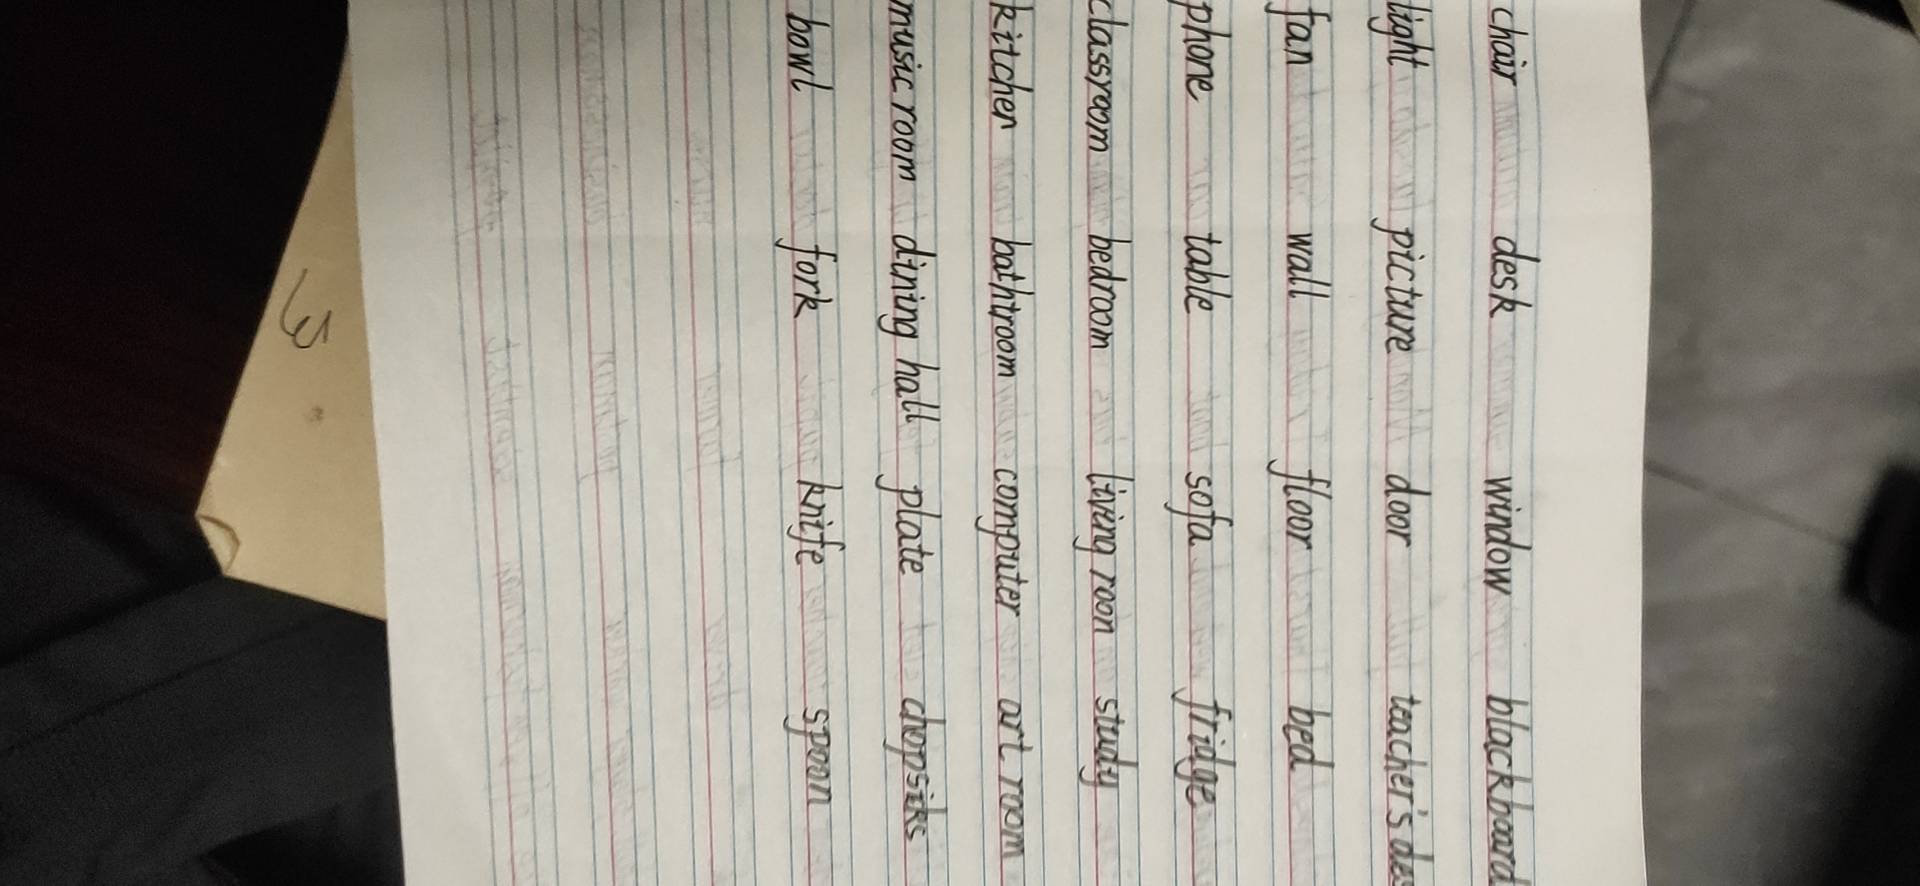 chair desk window blackboard
light picture door teacher's
fan wall floor bed
phone table sofa fridge
classroom bedroom living roon study
kitcher bathtroom computer art room
music room dining hall plate chopsitks
bowl fork knife spoon